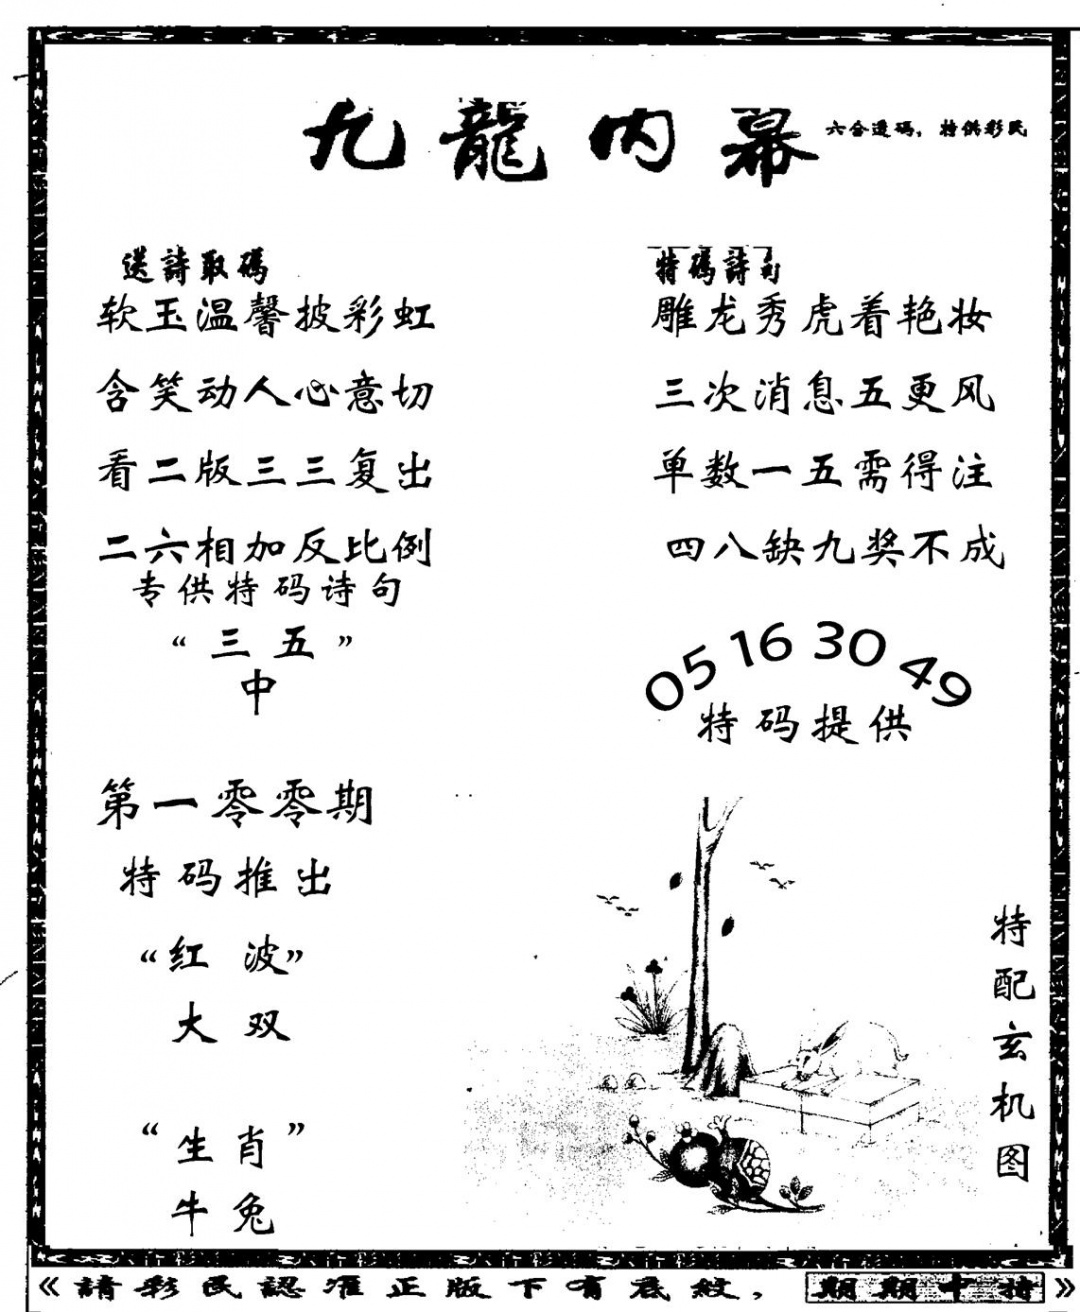 九龍内幕
六合透碼，特供彩民
送詩取碼
软玉温馨披彩虹
含笑动人心意切
看二版三三复出
二六相加反比例
专供特码诗句
“三五”
中
第一零零期
特码推出
“红波”
大双
“生肖”
牛兔
特碼詩句
雕龙秀虎着艳妆
三次消息五更风
单数一五需得注
四八缺九奖不成
05 16 30 49
特码提供
特配玄机图
《請彩民認准正版下有底紋，期期中特》